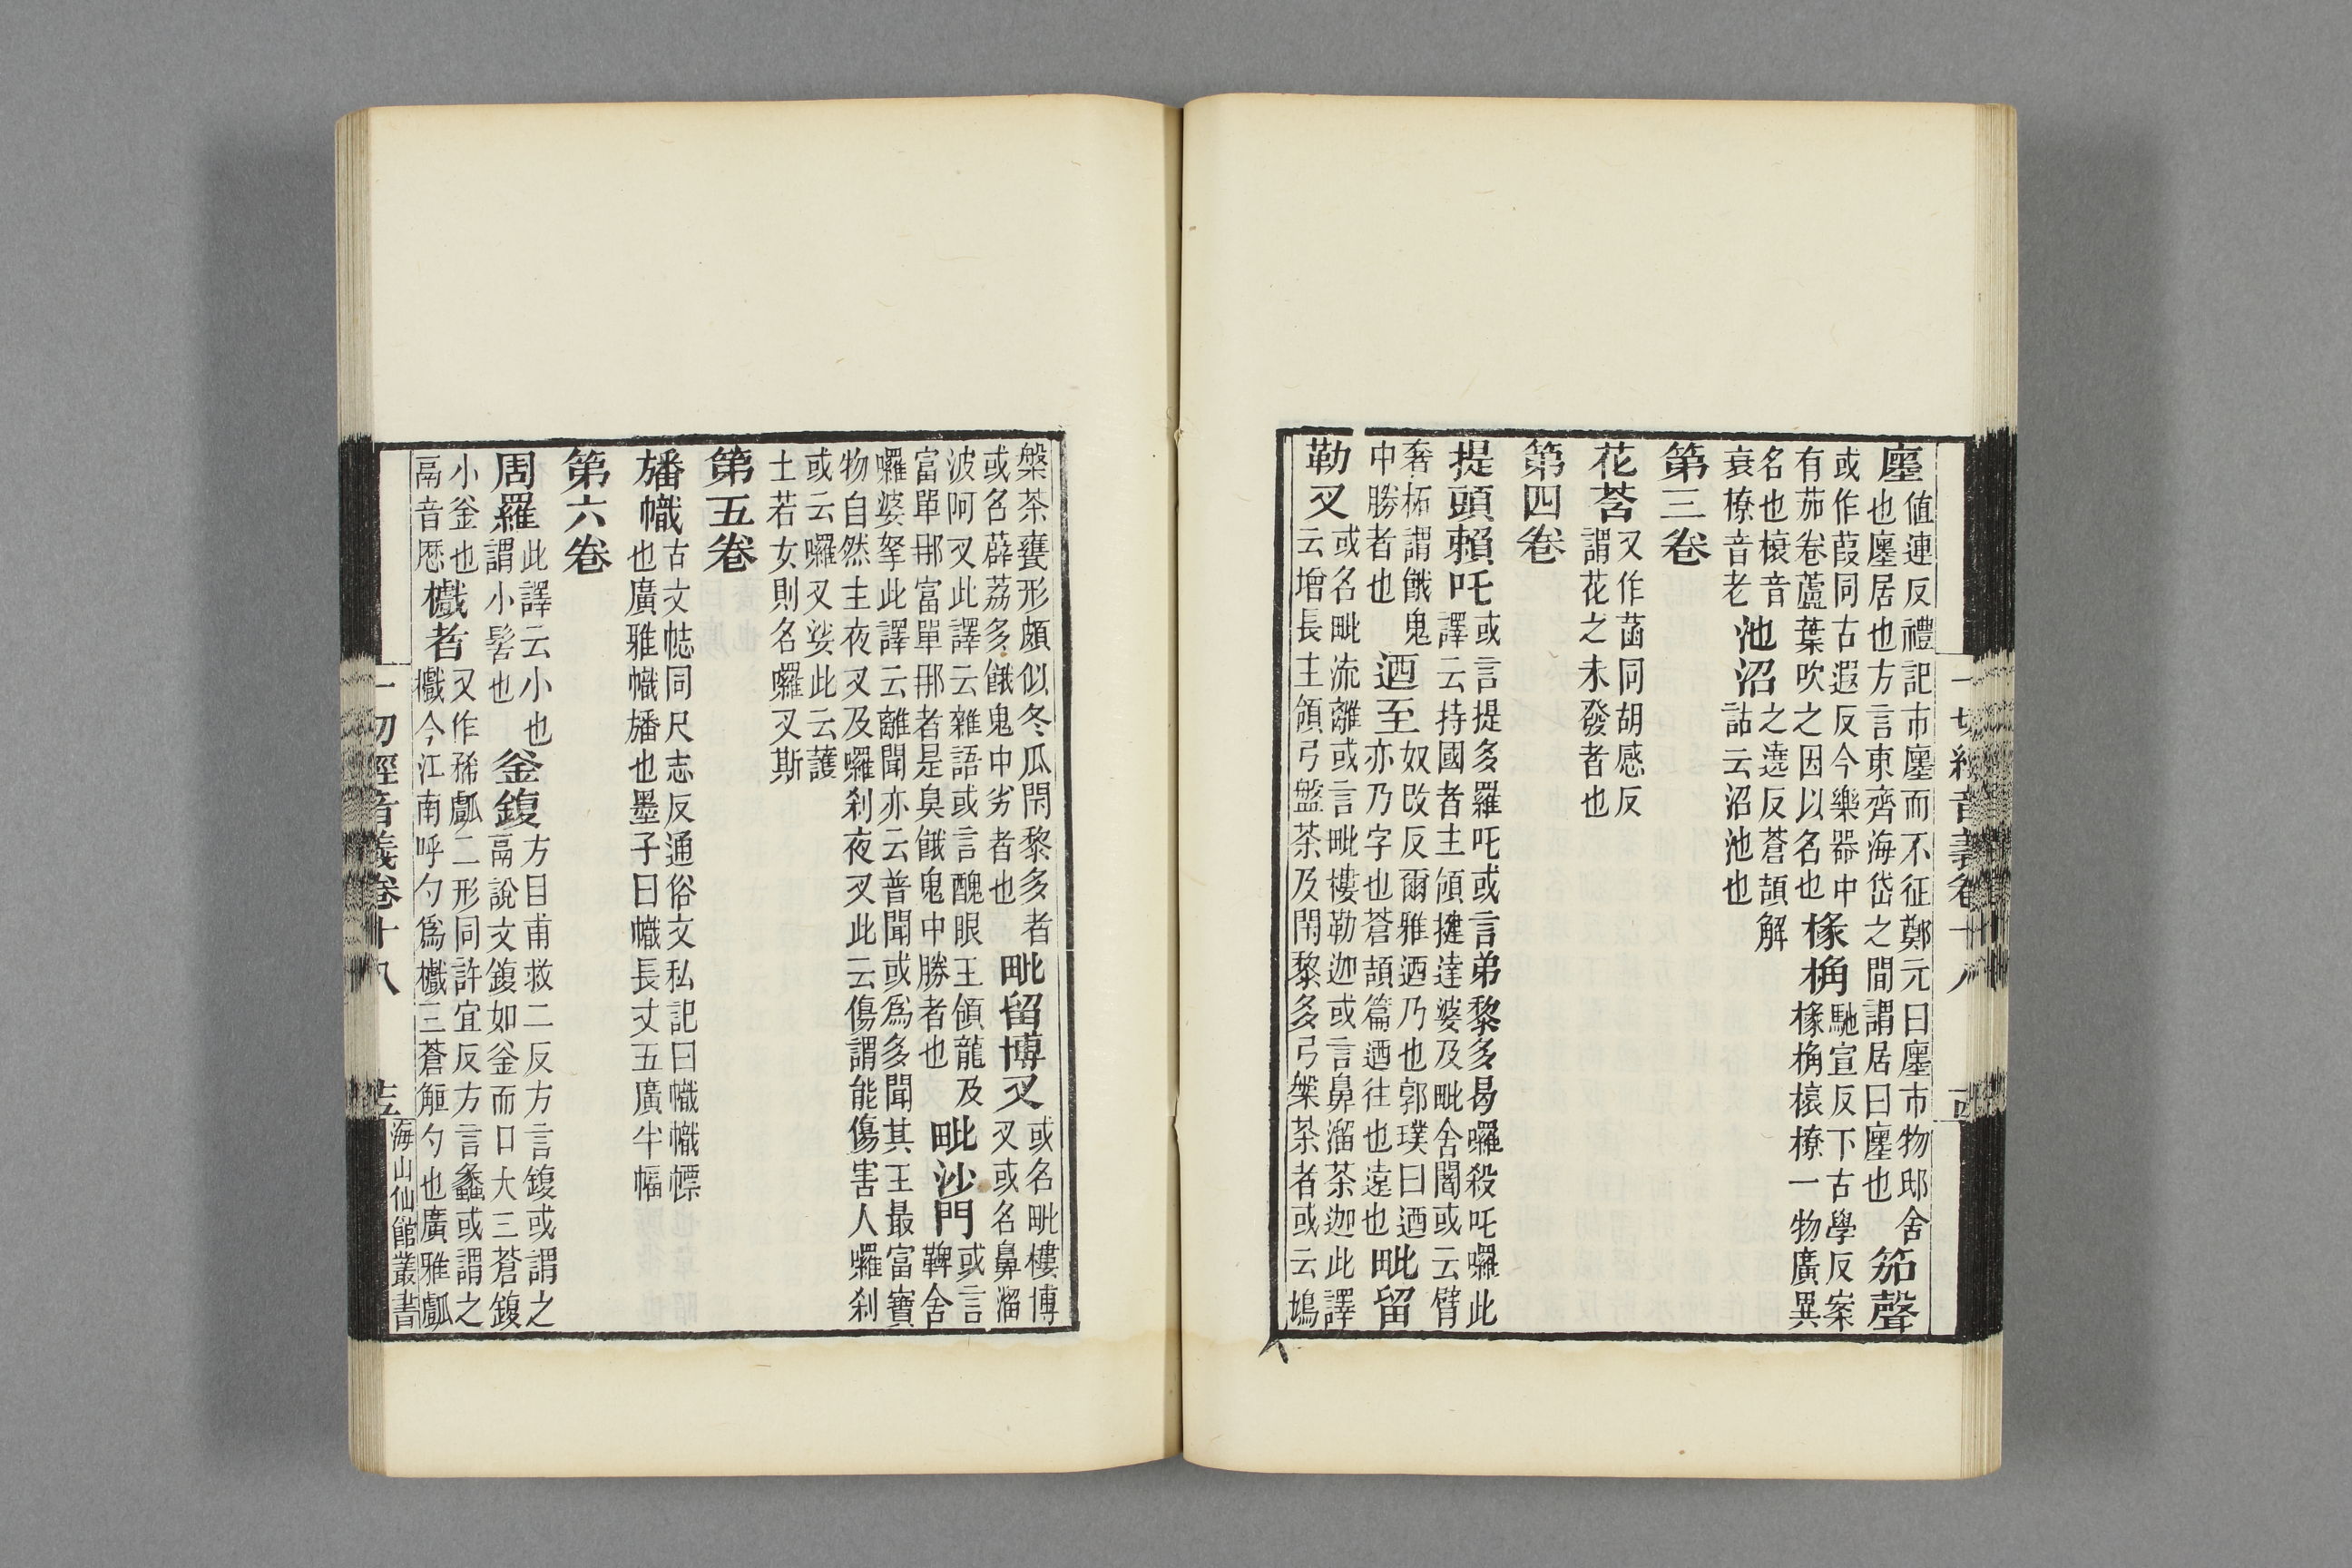 一切經音義卷十八
廛値連反禮記市廛而不征鄭元曰廛市物邸舍
也廛居也方言東齊海岱之間謂居曰廛也笳聲
或作葭同古遐反今樂器中
有茄卷蘆葉吹之因以名也椽桷馳宣反下古學反案
椽桷榱橑一物廣異
名也榱音
衰橑音老池沼之遶反蒼頡解
詁云沼池也
第三卷
花莟又作菡同胡感反
謂花之未發者也
第四卷
提頭賴吒或言提多羅吒或言弟黎多曷囉殺吒囉此
譯云持國者主領揵達婆及毗舍闍或云臂
奢柘謂餓鬼
中勝者也迺至奴改反爾雅迺乃也郭璞曰迺
亦乃字也蒼頡篇迺往也遠也毗留
勒叉或名毗流離或言毗樓勒迦或言鼻溜茶迦此譯
云增長主領弓盤茶及閇黎多弓槃茶者或云鳩
槃茶甕形頗似冬瓜閇黎多者
或名薜荔多餓鬼中劣者也毗留博叉或名毗樓博
叉或名鼻溜
波阿叉此譯云雜語或言醜眼王領龍及
富單那富單那者是臭餓鬼中勝者也毗沙門或言
鞞舍
囉婆拏此譯云離聞亦云普聞或爲多聞其王最富寶
物自然主夜叉及囉刹夜叉此云傷謂能傷害人囉刹
或云囉叉娑此云護
士若女則名囉叉斯
第五卷
旛幟古文㡁同尺志反通俗文私記曰幟幟幖
也廣雅幟旛也墨子曰幟長丈五廣半幅
第六卷
周羅此譯云小也
謂小髻也釜鍑方目甫救二反方言鍑或謂之
鬲說文鍑如釜而口大三蒼鍑
小釜也
鬲音歷㰕者又作稀㪮二形同許宜反方言蠡或謂之
㰕今江南呼勺爲㰕三蒼㔶勺也廣雅㪮
一切經音義卷十八
海山仙館叢書